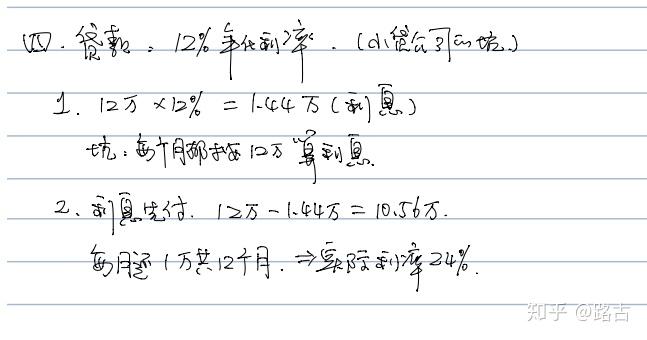 四. 贷款: 12%年化利率. (小贷公司的坑)
1. 12万×12% = 1.44万(利息)
坑:每个月都按12万算利息.
2. 利息先付. 12万-1.44万=10.56万.
每月还1万共12个月. ⇒实际利率24%.
知乎 @路古